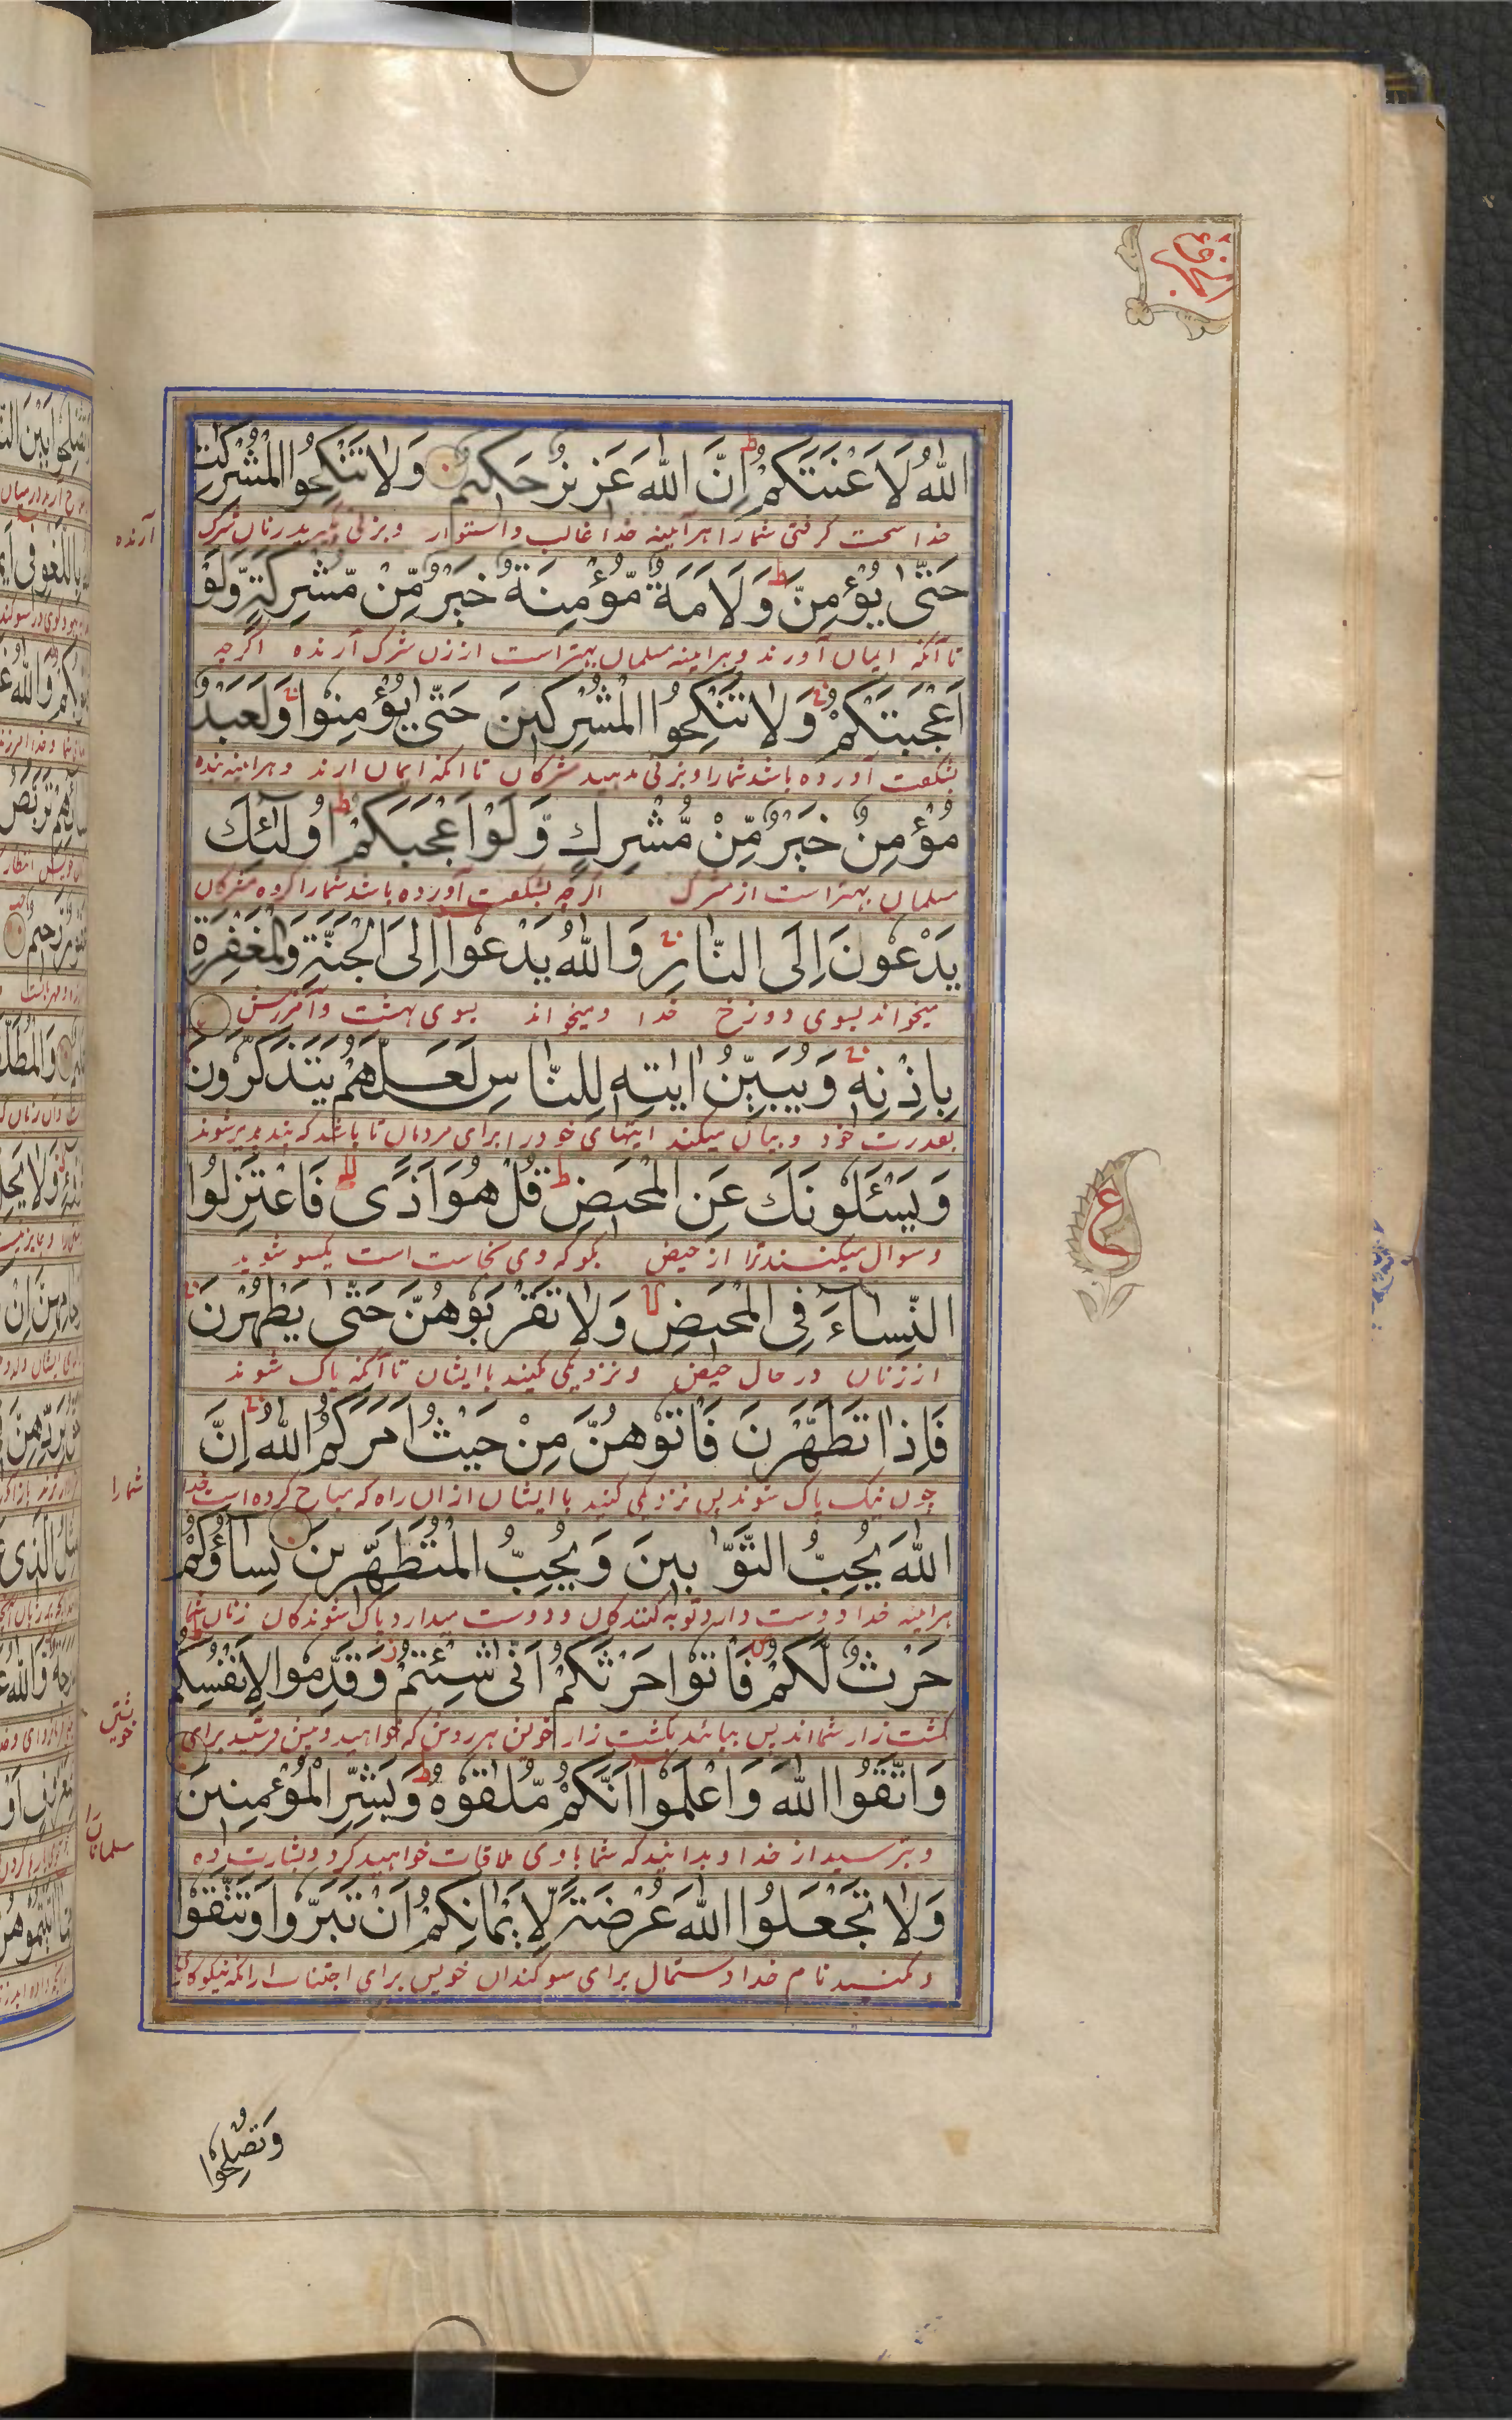 الجزء
اللّٰهُ لَاَعْنَتَكُمْ ط اِنَّ اللّٰهَ عَزِيْزٌ حَكِيْمٌ وَلَا تَنْكِحُوا الْمُشْرِكٰتِ
خدا سخت گرفتی شما را هرآینه خدا غالب و استوار و بزنی مگیرید زنان شرک
آرنده
حَتّٰى يُؤْمِنَّ ط وَلَاَمَةٌ مُّؤْمِنَةٌ خَيْرٌ مِّنْ مُّشْرِكَةٍ وَّلَوْ
تا آنکه ایمان آورند و هرآینه مسلمان بهتر است از زن شرک آرنده اگرچه
اَعْجَبَتْكُمْ وَلَا تُنْكِحُوا الْمُشْرِكِيْنَ حَتّٰى يُؤْمِنُوْا وَلَعَبْدٌ
بشگفت آورده باشد شما را و بزنی مدهید مشرکان تا آنکه ایمان آرند و هرآینه بنده
مُّؤْمِنٌ خَيْرٌ مِّنْ مُّشْرِكٍ وَّلَوْ اَعْجَبَكُمْ ط اُولٰٓئِكَ
مسلمان بهتر است از مشرک اگرچه بشگفت آورده باشد شما را گروه مشرکان
يَدْعُوْنَ اِلَى النَّارِ وَاللّٰهُ يَدْعُوْٓا اِلَى الْجَنَّةِ وَالْمَغْفِرَةِ
میخواند بسوی دوزخ خدا و میخواند بسوی بهشت و آمرزش
بِاِذْنِهٖ وَيُبَيِّنُ اٰيٰتِهٖ لِلنَّاسِ لَعَلَّهُمْ يَتَذَكَّرُوْنَ
بقدرت خود و بیان میکند آیتهای خود را برای مردمان تا باشد که پندپذیر شوند
ع
وَيَسْـَٔلُوْنَكَ عَنِ الْمَحِيْضِ ط قُلْ هُوَ اَذًى فَاعْتَزِلُوا
و سوال میکنند ترا از حیض بگو که وی نجاست است یکسو شوید
النِّسَآءَ فِى الْمَحِيْضِ لا وَلَا تَقْرَبُوْهُنَّ حَتّٰى يَطْهُرْنَ
از زنان در حال حیض و نزدیکی مکنید با ایشان تا آنکه پاک شوند
فَاِذَا تَطَهَّرْنَ فَاْتُوْهُنَّ مِنْ حَيْثُ اَمَرَكُمُ اللّٰهُ اِنَّ
چون نیک پاک شوند پس نزدیکی کنید با ایشان از آن راه که مباح کرده است خدا
شما را
اللّٰهَ يُحِبُّ التَّوَّابِيْنَ وَيُحِبُّ الْمُتَطَهِّرِيْنَ نِسَآؤُكُمْ
هرآینه خدا دوست دارد توبه کنندگان و دوست میدارد پاک شوندگان زنان شما
حَرْثٌ لَّكُمْ فَاْتُوْا حَرْثَكُمْ اَنّٰى شِئْتُمْ ز وَقَدِّمُوْا لِاَنْفُسِكُمْ ط
کشت زار شما اند پس بیائید بکشت زار خویش هر روش که خواهید و پیش فرستید برای
خویشتن
وَاتَّقُوا اللّٰهَ وَاعْلَمُوْٓا اَنَّكُمْ مُّلٰقُوْهُ ط وَبَشِّرِ الْمُؤْمِنِيْنَ
و بترسید از خدا و بدانید که شما با وی ملاقات خواهید کرد و بشارت ده
مسلمانان را
وَلَا تَجْعَلُوا اللّٰهَ عُرْضَةً لِّاَيْمَانِكُمْ اَنْ تَبَرُّوْا وَتَتَّقُوْا
و مکنید نام خدا دستمال برای سوگندان خویش برای اجتناب از آنکه نیکوکاری
وَتُصْلِحُوْا